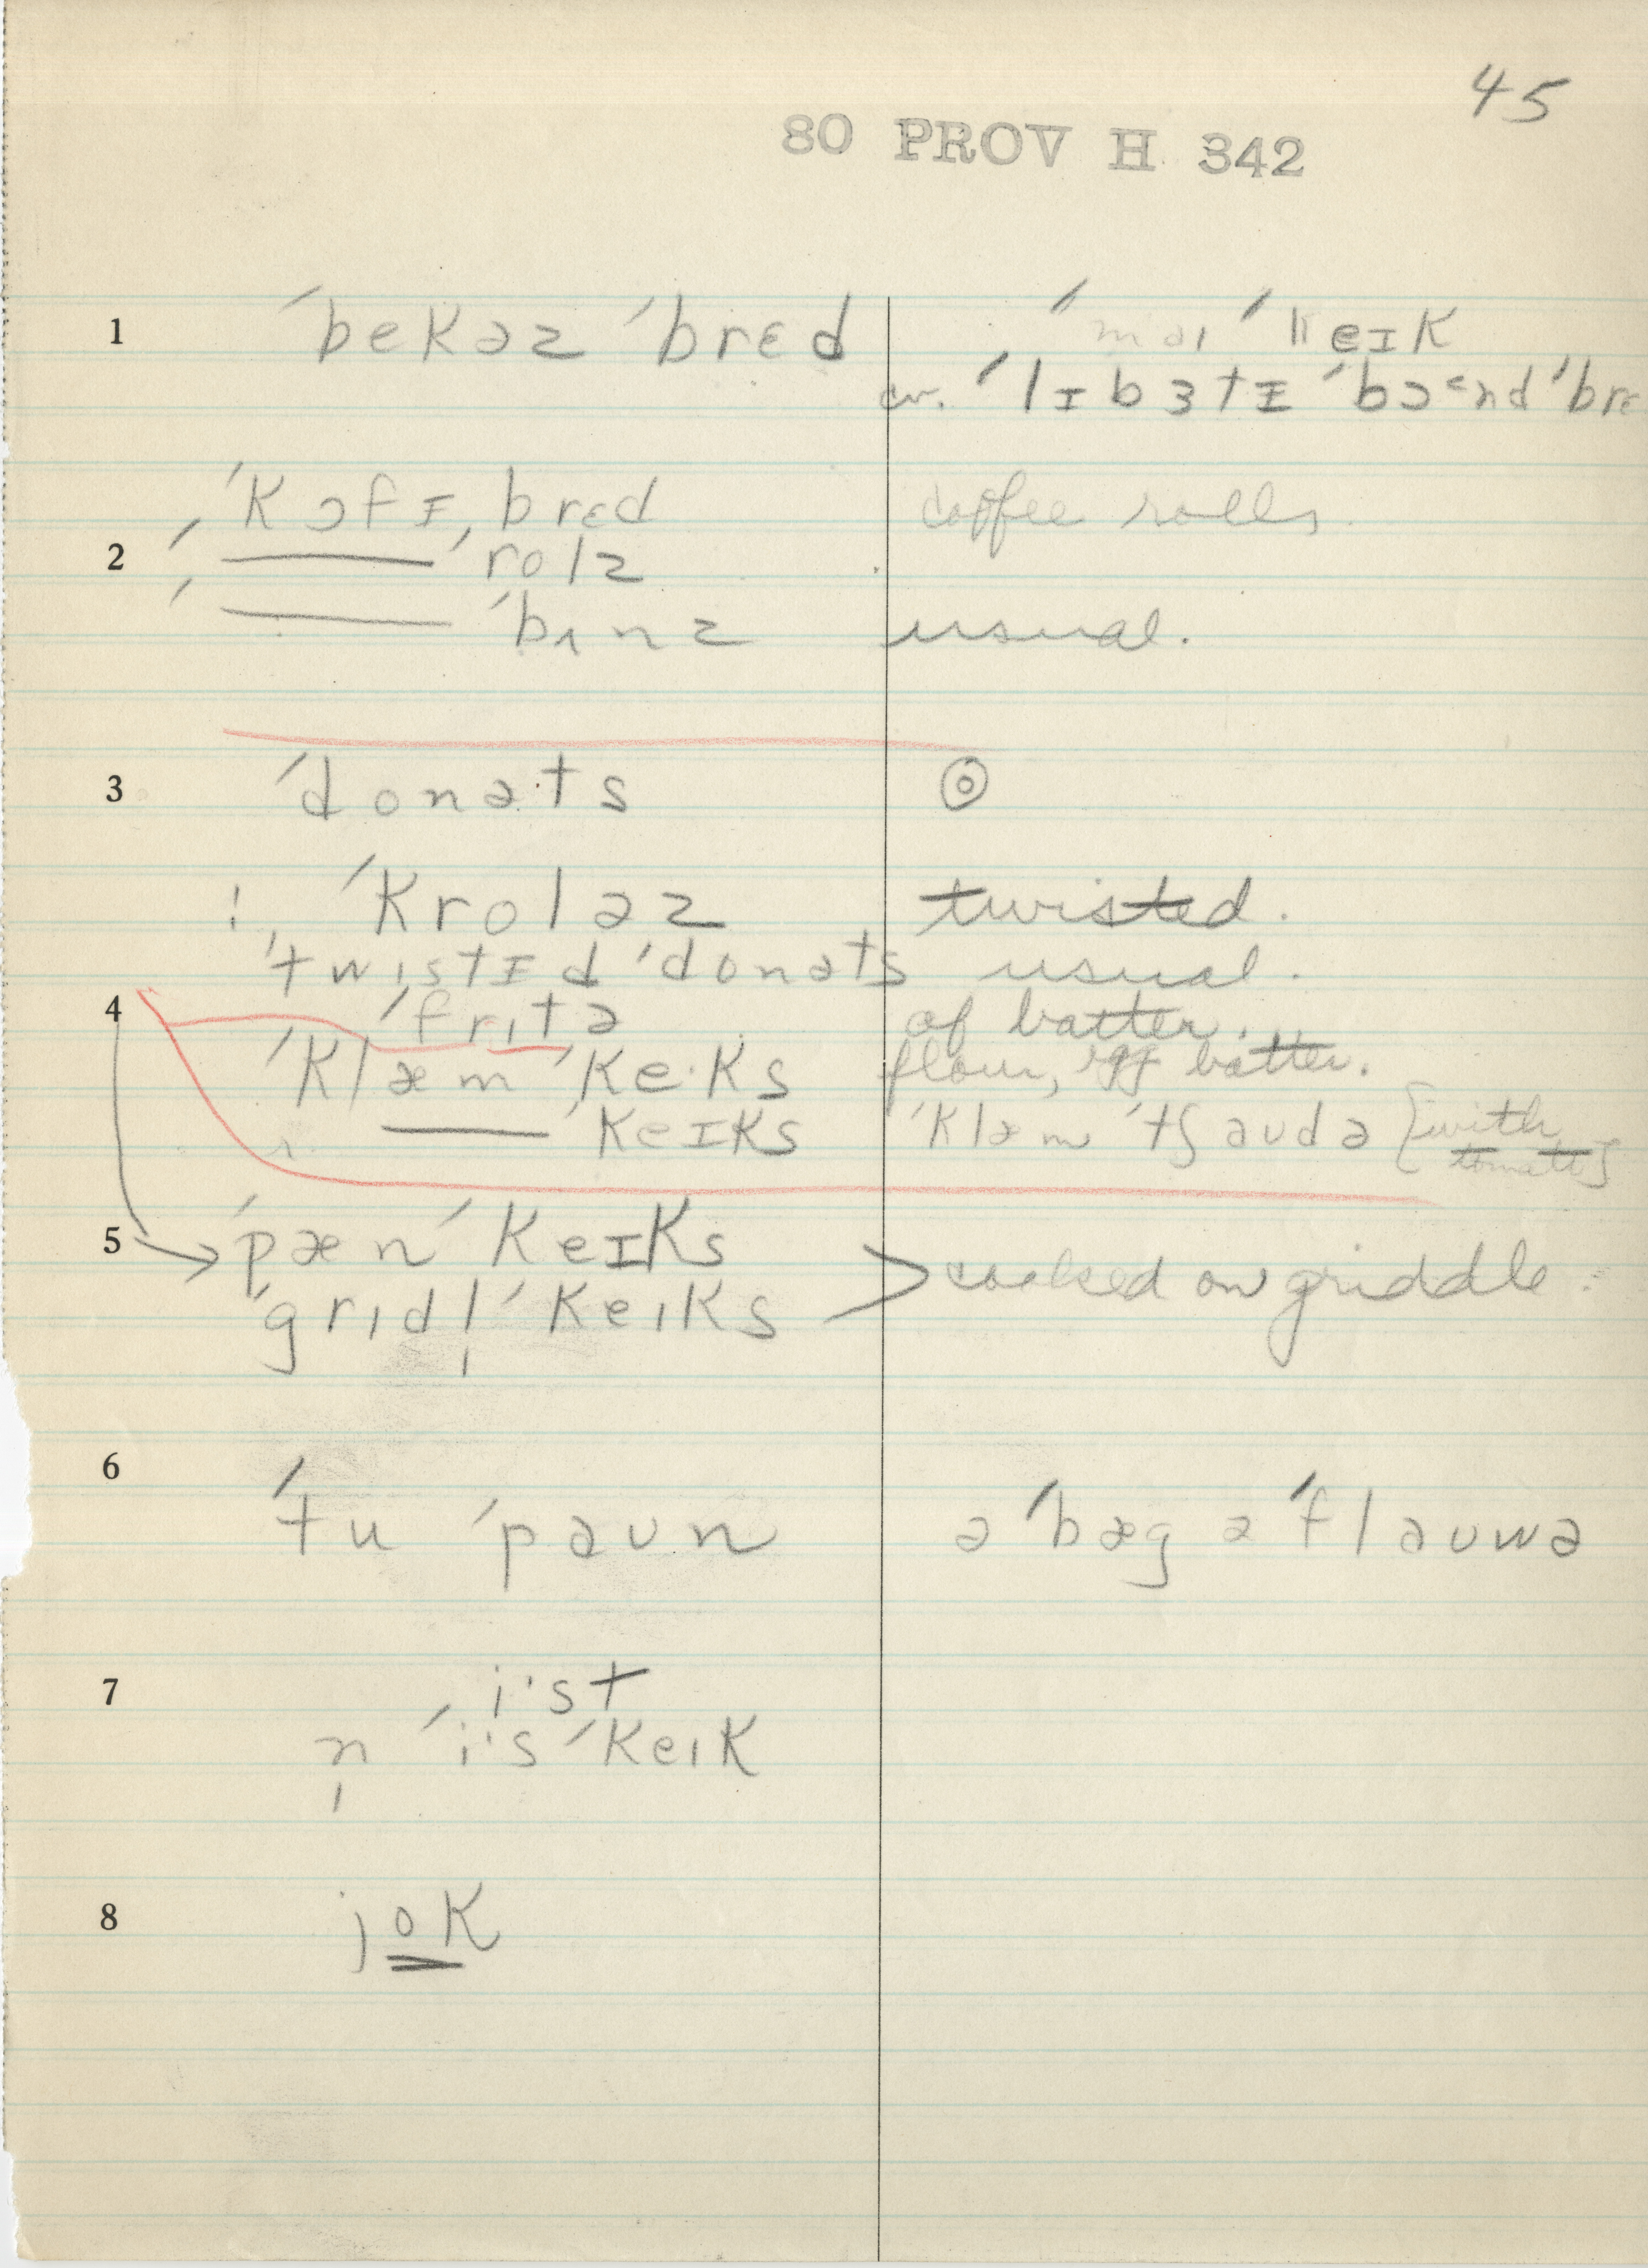 45
80 PROV H 342
1 ˈbekəz ˈbrɛd
ˈmaɪ ˈkeɪk
cv. ˈlɪbɜtɪ ˈbɔᵋnd ˈbrɛ
ˈkɔfɪ ˌbrɛd coffee rolls.
2 ˈ—— ˈrolz
ˈ—— ˈbʌnz usual.
3 ˈdonəts ⊙
! ˈkroləz twisted.
ˈtwɪstɪd ˈdonəts usual.
4 ˈfrɪtə of batter.
ˈklæm ˈke·ks flour, egg batter.
—— ˈkeɪks ˈklæm ˈtʃaudə {with tomato}
5 → ˈpæn ˈkeɪks
ˈgrɪdl̩ ˈkeɪks > cooked on griddle.
6
ˈtu ˈpaun ə ˈbæg ə ˈflauwə
7 i·st
n̩ ˈi·s ˈkeɪk
8 jok